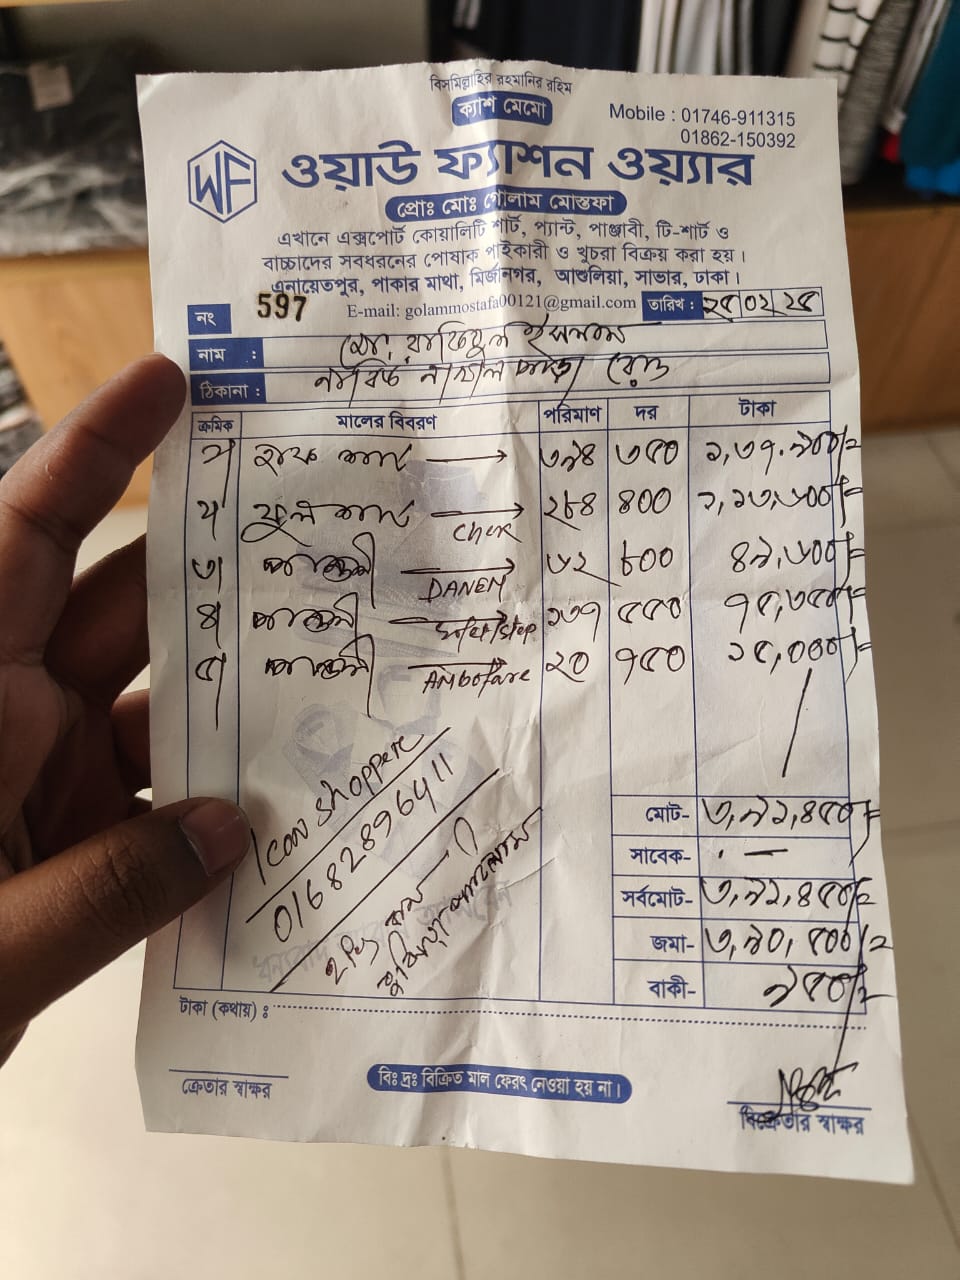 বিসমিল্লাহির রহমানির রহিম
ক্যাশ মেমো
Mobile : 01746-911315
01862-150392
WF
ওয়াউ ফ্যাশন ওয়্যার
প্রোঃ মোঃ গোলাম মোস্তফা
এখানে এক্সপোর্ট কোয়ালিটি শার্ট, প্যান্ট, পাঞ্জাবী, টি-শার্ট ও
বাচ্চাদের সবধরনের পোষাক পাইকারী ও খুচরা বিক্রয় করা হয়।
এনায়েতপুর, পাকার মাথা, মির্জানগর, আশুলিয়া, সাভার, ঢাকা।
E-mail: golammostafa00121@gmail.com
নং 597 তারিখ : ২৫ ০২ ২৫
নাম : মো: রফিকুল ইসলাম
ঠিকানা : রোড
ক্রমিক মালের বিবরণ পরিমাণ দর টাকা
১। হাফ শার্ট ৩৯৪ ৩৫০ ১,৩৭,৯০০/=
২। ফুল শার্ট ২৮৪ ৪০০ ১,১৩,৬০০/=
৩। পাঞ্জাবী DANEM ৬২ ৮০০ ৪৯,৬০০/=
৪। পাঞ্জাবী ১৩৭ ৫৫০ ৭৫,৩৫০/=
৫। পাঞ্জাবী ২০ ৭৫০ ১৫,০০০/=
Icon shoppere
01682896411
মোট- ৩,৯১,৪৫০/=
সাবেক- —
সর্বমোট- ৩,৯১,৪৫০/=
জমা- ৩,৯০,৫০০/=
বাকী- ৯৫০/=
টাকা (কথায়) :
ক্রেতার স্বাক্ষর
বিঃ দ্রঃ বিক্রিত মাল ফেরৎ নেওয়া হয় না।
বিক্রেতার স্বাক্ষর